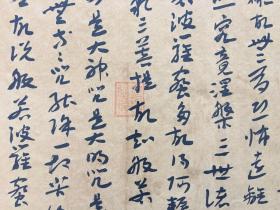 故无有恐怖遠離
究竟涅槃三世諸
波羅蜜多故得阿耨
三菩提故知般若
是大神咒是大明咒是
等咒能除一切苦
故說般若波羅蜜